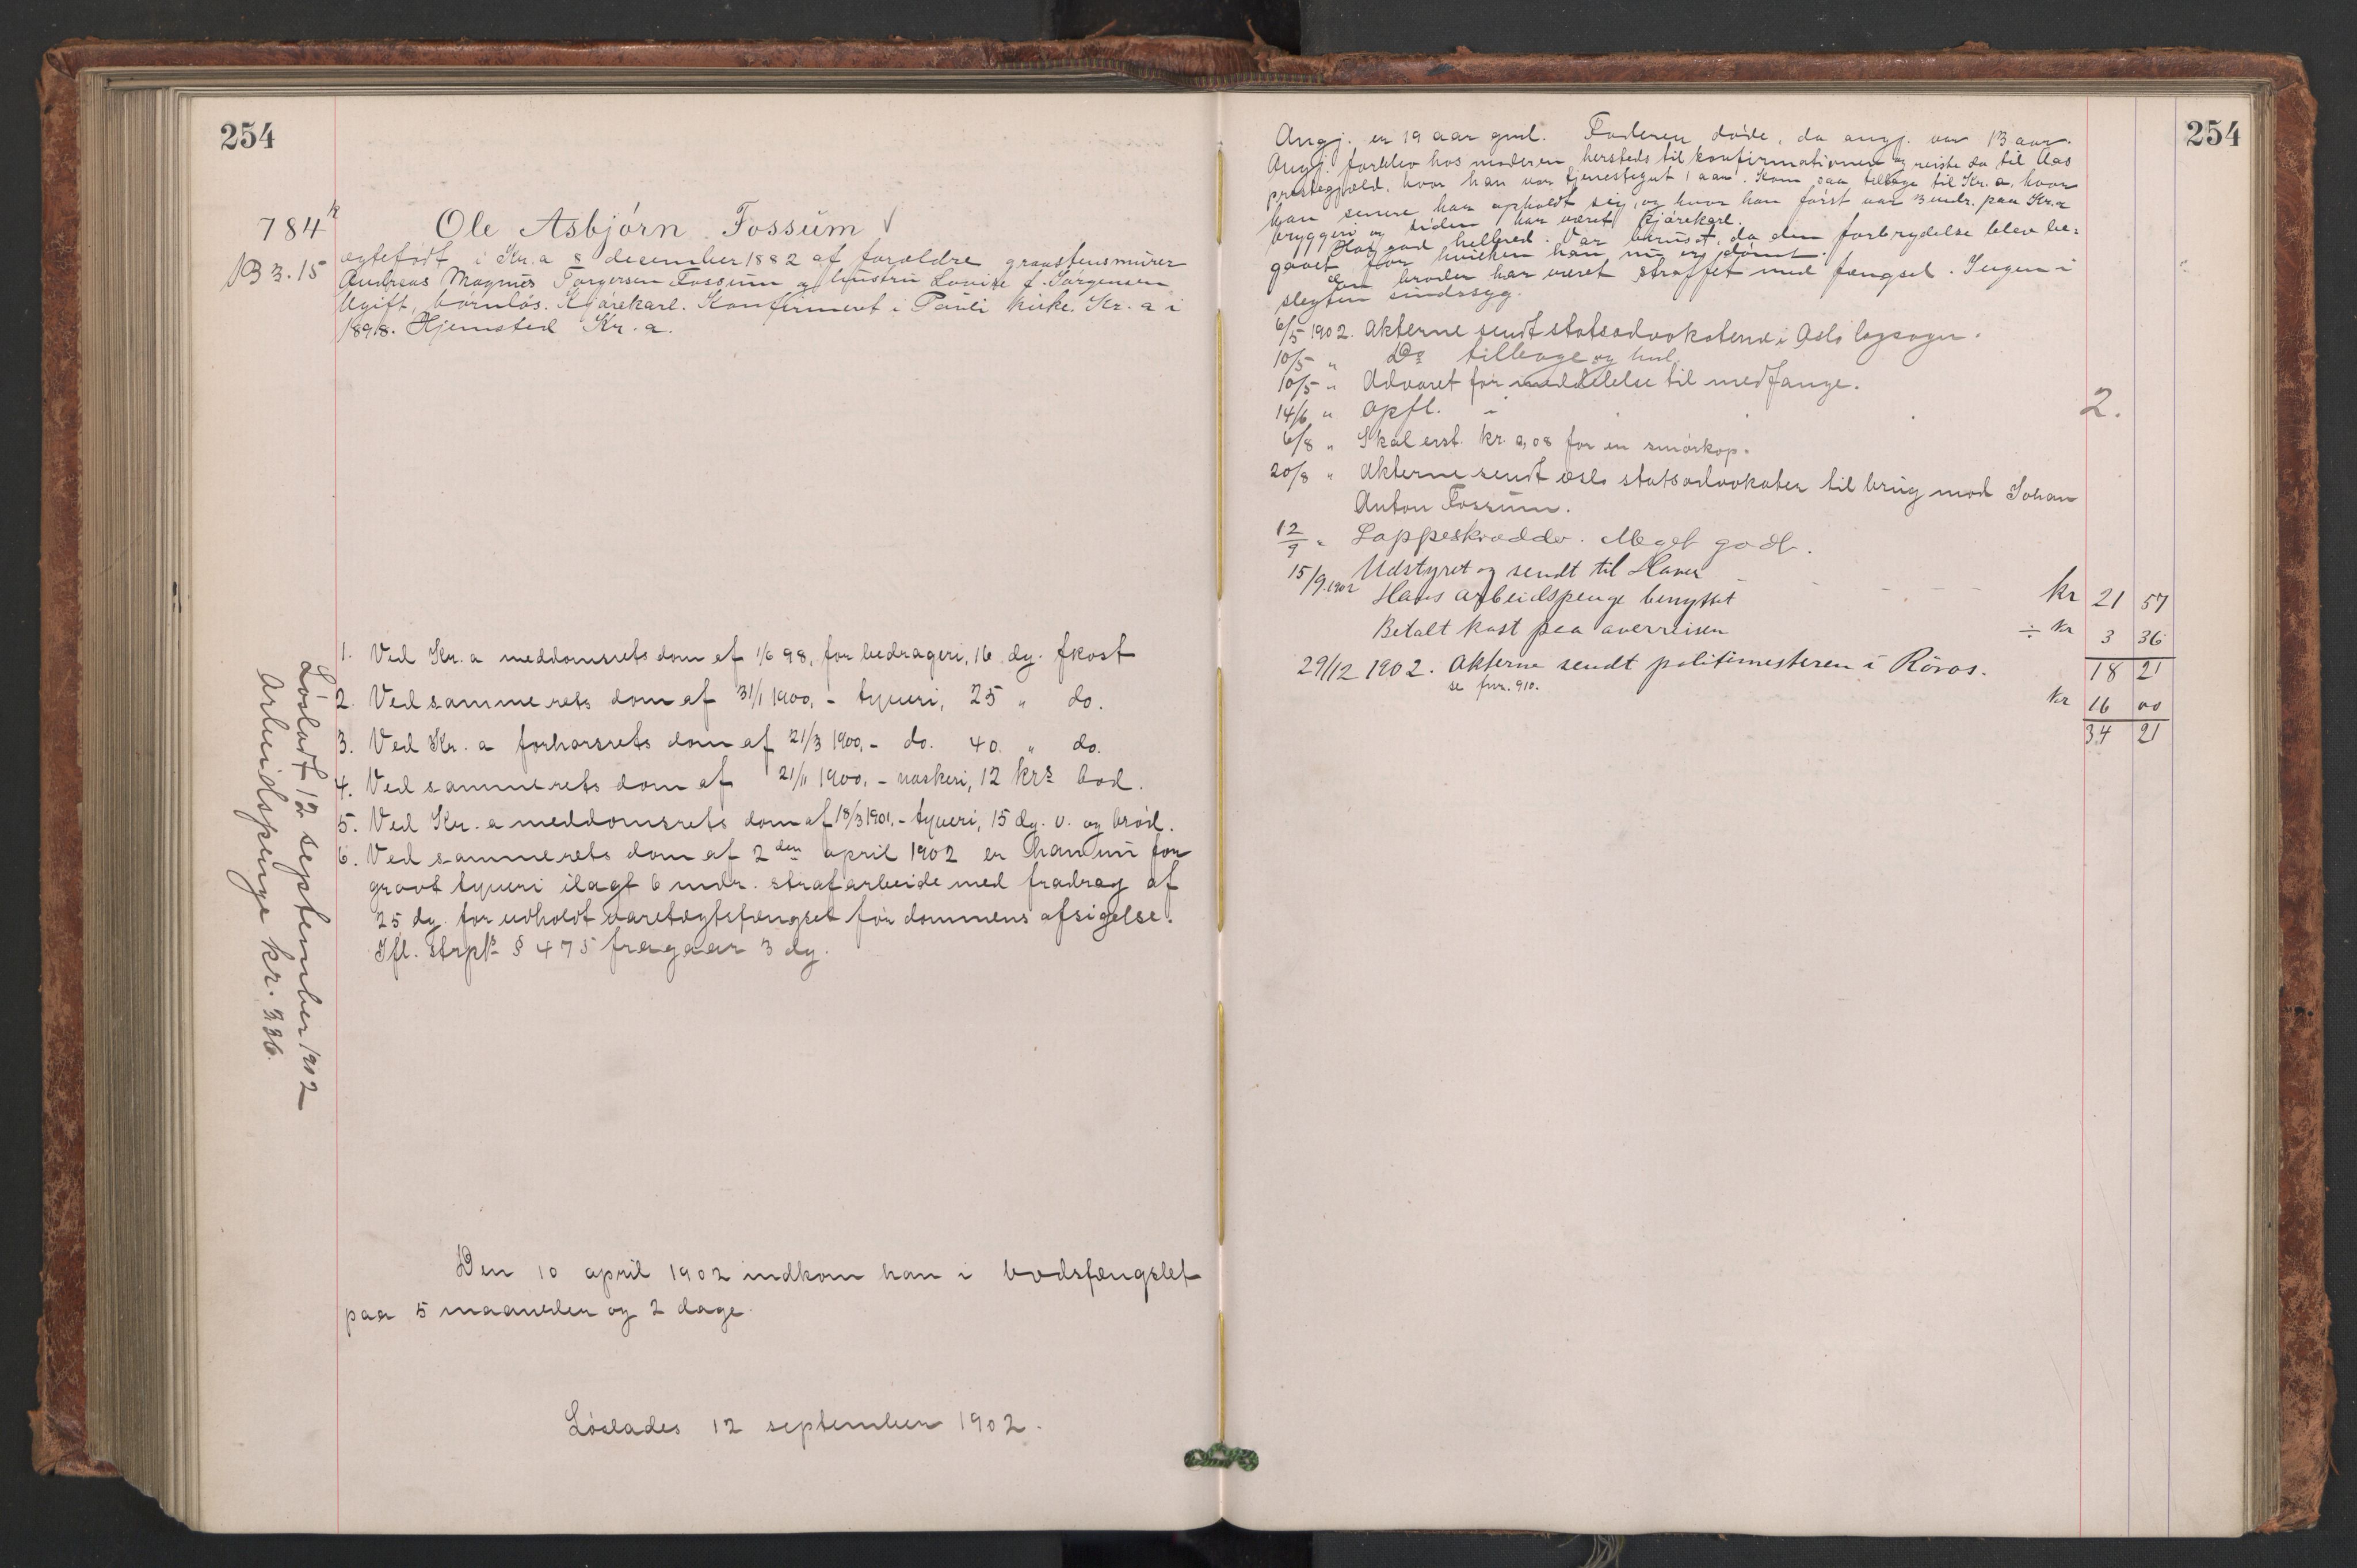 254
784
B 3.15
Ole Asbjørn Fossum
egtefødt i Kr.a 8 desember 1882 af forældre graastensmurer
Andreas Magnus Torgersen Fossum og hustru Lovise f. Jørgensen
Ugift, børnløs. Kjørekarl. Konfirmeret i Pauli kirke. Kr. a i
1898. Hjemsted Kr. a.
1. Ved Kr. a meddomsrets dom af 1/6 98, for bedrageri, 16 dg. fkost
2. Ved samme rets dom af 31/1 1900, - tyveri, 25 " do.
3. Ved Kr. a forhørsrets dom af 21/3 1900, - do. 40 " do.
4. Ved samme rets dom af 21/11 1900, - naskeri, 12 krs bod.
5. Ved Kr. a meddomsrets dom af 18/3 1901, - tyveri, 15 dg. v. og brød.
6. Ved samme rets dom af 2den april 1902 er han nu for
grovt tyveri ilagt 6 mdr. strafarbeide med fradrag af
25 dg. for udholdt varetægtsfængsel før dommens afsigelse.
Ifl. strpl. § 475 fragaar 3 dg.
Løsladt 12 september 1902
Arbeidspenge kr. 3.36.
Den 10 april 1902 indkom han i bodsfængslet
paa 5 maaneder og 2 dage.
Løslades 12 september 1902.
254
Angj. er 19 aar gml. Faderen døde, da angj. var 13 aar.
Angj. forblev hos moderen hersteds til konfirmationen og reiste da til Aas
prestegjeld, hvor han var tjenestegut 1 aar. Kom saa tilbage til Kr. a, hvor
han senere har opholdt sig, og hvor han først var 3 mdr. paa Kr.a
bryggeri og siden har været kjørekarl.
Har god helbred. Var beruset, da den forbrydelse blev be-
gaaet for hvilken han nu er dømt.
En broder har været straffet med fængsel. Ingen i
slegten sindssyg.
6/5 1902. Akterne sendt statsadvokaterne i Oslo lagsogn.
10/5 " Do tilbage og hul.
10/5 " Advaret for meddelelse til medfange.
14/6 " Opfl. 2.
6/8 " Skal erst. kr. 0,08 for en smørkop.
20/8 " Akterne sendt Oslo statsadvokater til brug mod Johan
Anton Fossum.
12/9 " Lappeskrædder. Meget godt.
15/9 1902 Udstyret og sendt til Havre
Hans arbeidspenge benyttet kr 21 57
Betalt kost paa overreisen ÷ kr 3 36
18 21
29/12 1902. Akterne sendt politimesteren i Røros.
se fnr. 910.
kr 16 00
34 21